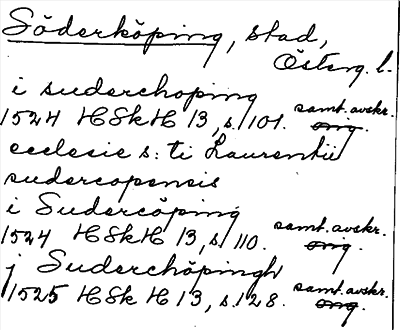 Söderköping, stad,
Österg. l.
i suderchoping
1524 HSkH 13, s. 101. samt. avskr.
orig.
ecclesie s:ti Laurentii
sudercopensis
i Sudercöping
1524 HSkH 13, s. 110. samt. avskr.
orig.
j Suderchöpingh
1525 HSkH 13, s. 128. samt. avskr.
orig.